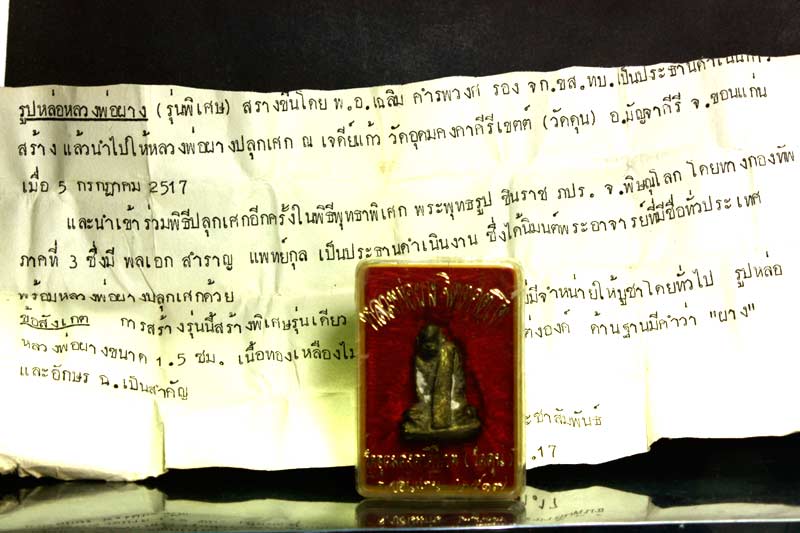 รูปหล่อหลวงพ่อผาง (รุ่นพิเศษ) สร้างขึ้นโดย พ.อ.เฉลิม คำรพวงศ์ รอง จก.ขส.ทบ.เป็นประธานดำเนินการ
สร้าง แล้วนำไปให้หลวงพ่อผางปลุกเศก ณ เจดีย์แก้ว วัดอุดมคงคาคีรีเขตต์ (วัดดูน) อ.มัญจาคีรี จ.ขอนแก่น
เมื่อ 5 กรกฎาคม 2517
และนำเข้าร่วมพิธีปลุกเศกอีกครั้งในพิธีพุทธาพิเศก พระพุทธรูป ชินราช ภปร. จ.พิษณุโลก โดยทางกองทัพ
ภาคที่ 3 ซึ่งมี พลเอก สำราญ แพทย์กุล เป็นประธานดำเนินงาน ซึ่งได้นิมนต์พระอาจารย์ที่มีชื่อทั่วประเทศ
พร้อมหลวงพ่อผางปลุกเศกด้วย
ข้อสังเกต การสร้างรุ่นนี้สร้างพิเศษรุ่นเดียว มีจำหน่ายให้บูชาโดยทั่วไป รูปหล่อ
หลวงพ่อผางขนาด 1.5 ซม. เนื้อทองเหลือง องค์ ด้านฐานมีคำว่า "ผาง"
และอักษร ฉ.เป็นสำคัญ
ชาสัมพันธ์
.17